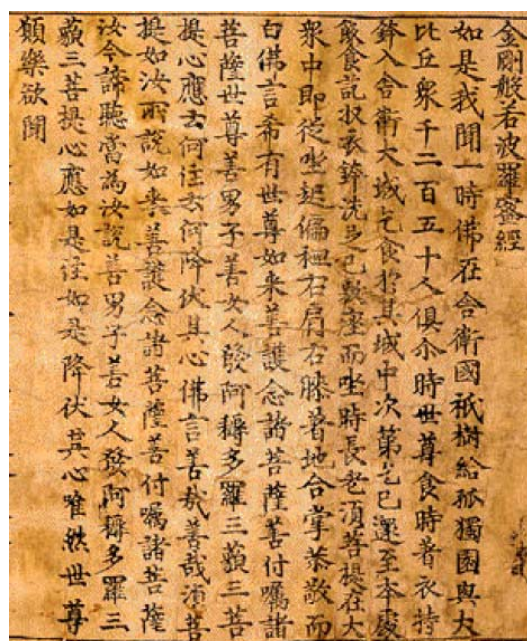 金剛般若波羅蜜經
如是我聞一時佛在舍衛國祇樹給孤獨園與大
比丘衆千二百五十人俱尒時世尊食時著衣持
鉢入舍衛大城乞食於其城中次第乞已還至本處
飯食訖收衣鉢洗足已敷座而坐時長老須菩提在大
衆中即從坐起偏袒右肩右膝著地合掌恭敬而
白佛言希有世尊如来善護念諸菩薩善付囑諸
菩薩世尊善男子善女人發阿耨多羅三藐三菩
提心應云何住云何降伏其心佛言善哉善哉須菩
提如汝所說如来善護念諸菩薩善付囑諸菩薩
汝今諦聽當為汝說善男子善女人發阿耨多羅三
藐三菩提心應如是住如是降伏其心唯然世尊
願樂欲聞